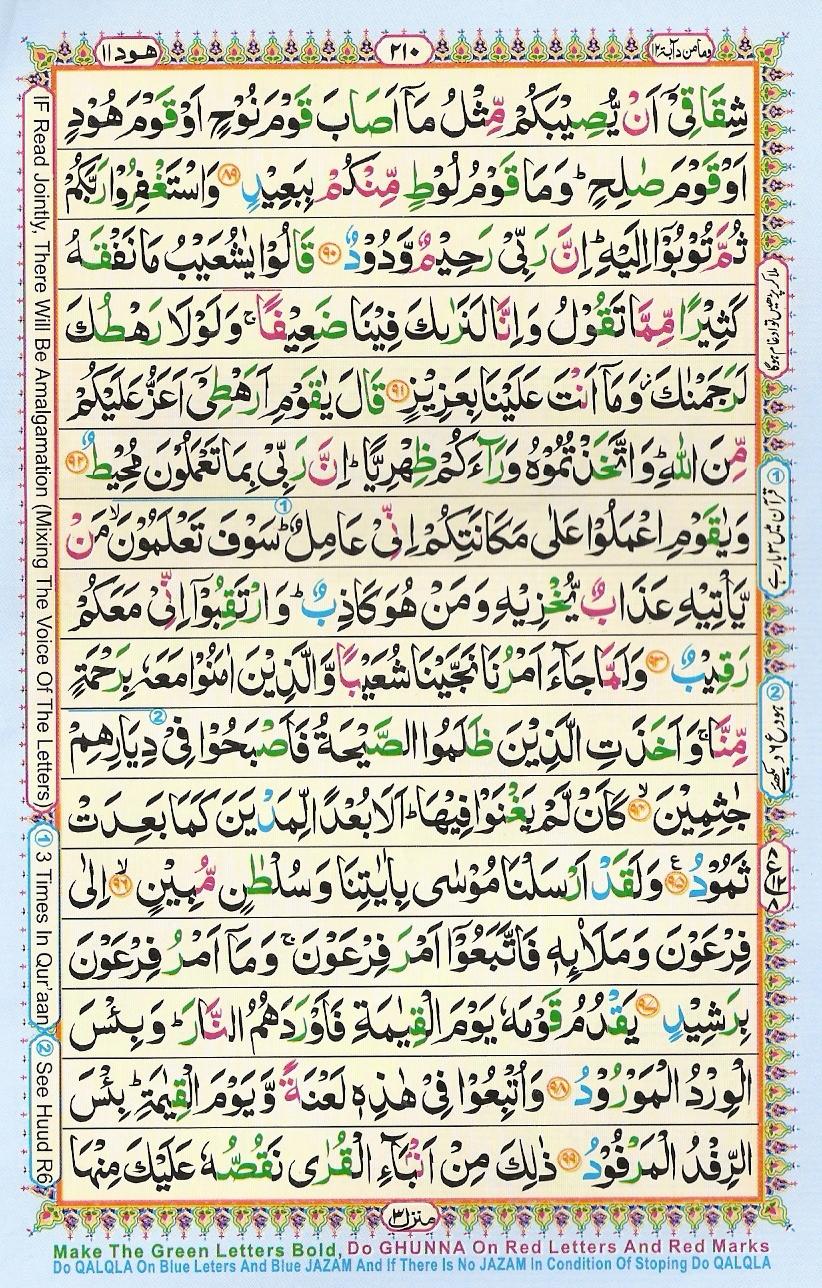 وما من دآبة ١٢
٢١٠
هود ١١
شِقَاقِىْٓ اَنْ يُّصِيْبَكُمْ مِّثْلُ مَاۤ اَصَابَ قَوْمَ نُوْحٍ اَوْ قَوْمَ هُوْدٍ
اَوْ قَوْمَ صٰلِحٍ ؕ وَمَا قَوْمُ لُوْطٍ مِّنْكُمْ بِبَعِيْدٍ ۝۸۹ وَاسْتَغْفِرُوْا رَبَّكُمْ
ثُمَّ تُوْبُوْۤا اِلَيْهِ ؕ اِنَّ رَبِّىْ رَحِيْمٌ وَّدُوْدٌ ۝۹۰ قَالُوْا يٰشُعَيْبُ مَا نَفْقَهُ
كَثِيْرًا مِّمَّا تَقُوْلُ وَاِنَّا لَنَرٰىكَ فِيْنَا ضَعِيْفًا ۚ وَلَوْلَا رَهْطُكَ
لَرَجَمْنٰكَ ؗ وَمَاۤ اَنْتَ عَلَيْنَا بِعَزِيْزٍ ۝۹۱ قَالَ يٰقَوْمِ اَرَهْطِىْۤ اَعَزُّ عَلَيْكُمْ
مِّنَ اللّٰهِ ؕ وَاتَّخَذْتُمُوْهُ وَرَآءَكُمْ ظِهْرِيًّا ؕ اِنَّ رَبِّىْ بِمَا تَعْمَلُوْنَ مُحِيْطٌ ۝۹۲
وَيٰقَوْمِ اعْمَلُوْا عَلٰى مَكَانَتِكُمْ اِنِّىْ عَامِلٌ ؕ سَوْفَ تَعْلَمُوْنَ ۙ مَنْ
يَّاْتِيْهِ عَذَابٌ يُّخْزِيْهِ وَمَنْ هُوَ كَاذِبٌ ؕ وَارْتَقِبُوْۤا اِنِّىْ مَعَكُمْ
رَقِيْبٌ ۝۹۳ وَلَمَّا جَآءَ اَمْرُنَا نَجَّيْنَا شُعَيْبًا وَّالَّذِيْنَ اٰمَنُوْا مَعَهٗ بِرَحْمَةٍ
مِّنَّا ۚ وَاَخَذَتِ الَّذِيْنَ ظَلَمُوا الصَّيْحَةُ فَاَصْبَحُوْا فِىْ دِيَارِهِمْ
جٰثِمِيْنَ ۙ ۝۹۴ كَاَنْ لَّمْ يَغْنَوْا فِيْهَا ؕ اَلَا بُعْدًا لِّمَدْيَنَ كَمَا بَعِدَتْ
ثَمُوْدُ ۝۹۵ وَلَقَدْ اَرْسَلْنَا مُوْسٰى بِاٰيٰتِنَا وَسُلْطٰنٍ مُّبِيْنٍ ۙ ۝۹۶ اِلٰى
فِرْعَوْنَ وَمَلَا۟ئِهٖ فَاتَّبَعُوْۤا اَمْرَ فِرْعَوْنَ ۚ وَمَاۤ اَمْرُ فِرْعَوْنَ
بِرَشِيْدٍ ۝۹۷ يَقْدُمُ قَوْمَهٗ يَوْمَ الْقِيٰمَةِ فَاَوْرَدَهُمُ النَّارَ ؕ وَبِئْسَ
الْوِرْدُ الْمَوْرُوْدُ ۝۹۸ وَاُتْبِعُوْا فِىْ هٰذِهٖ لَعْنَةً وَّيَوْمَ الْقِيٰمَةِ ؕ بِئْسَ
الرِّفْدُ الْمَرْفُوْدُ ۝۹۹ ذٰلِكَ مِنْ اَنْۢبَآءِ الْقُرٰى نَقُصُّهٗ عَلَيْكَ مِنْهَا
منزل ٣
ملا کر پڑھیں تو ادغام ہوگا
① قرآن میں ٣ بار ہے
② ہود ع ٦ دیکھئے
IF Read Jointly, There Will Be Amalgamation (Mixing The Voice Of The Letters)
① 3 Times In Qur'aan
② See Huud R6
Make The Green Letters Bold, Do GHUNNA On Red Letters And Red Marks
Do QALQLA On Blue Leters And Blue JAZAM And If There Is No JAZAM In Condition Of Stoping Do QALQLA